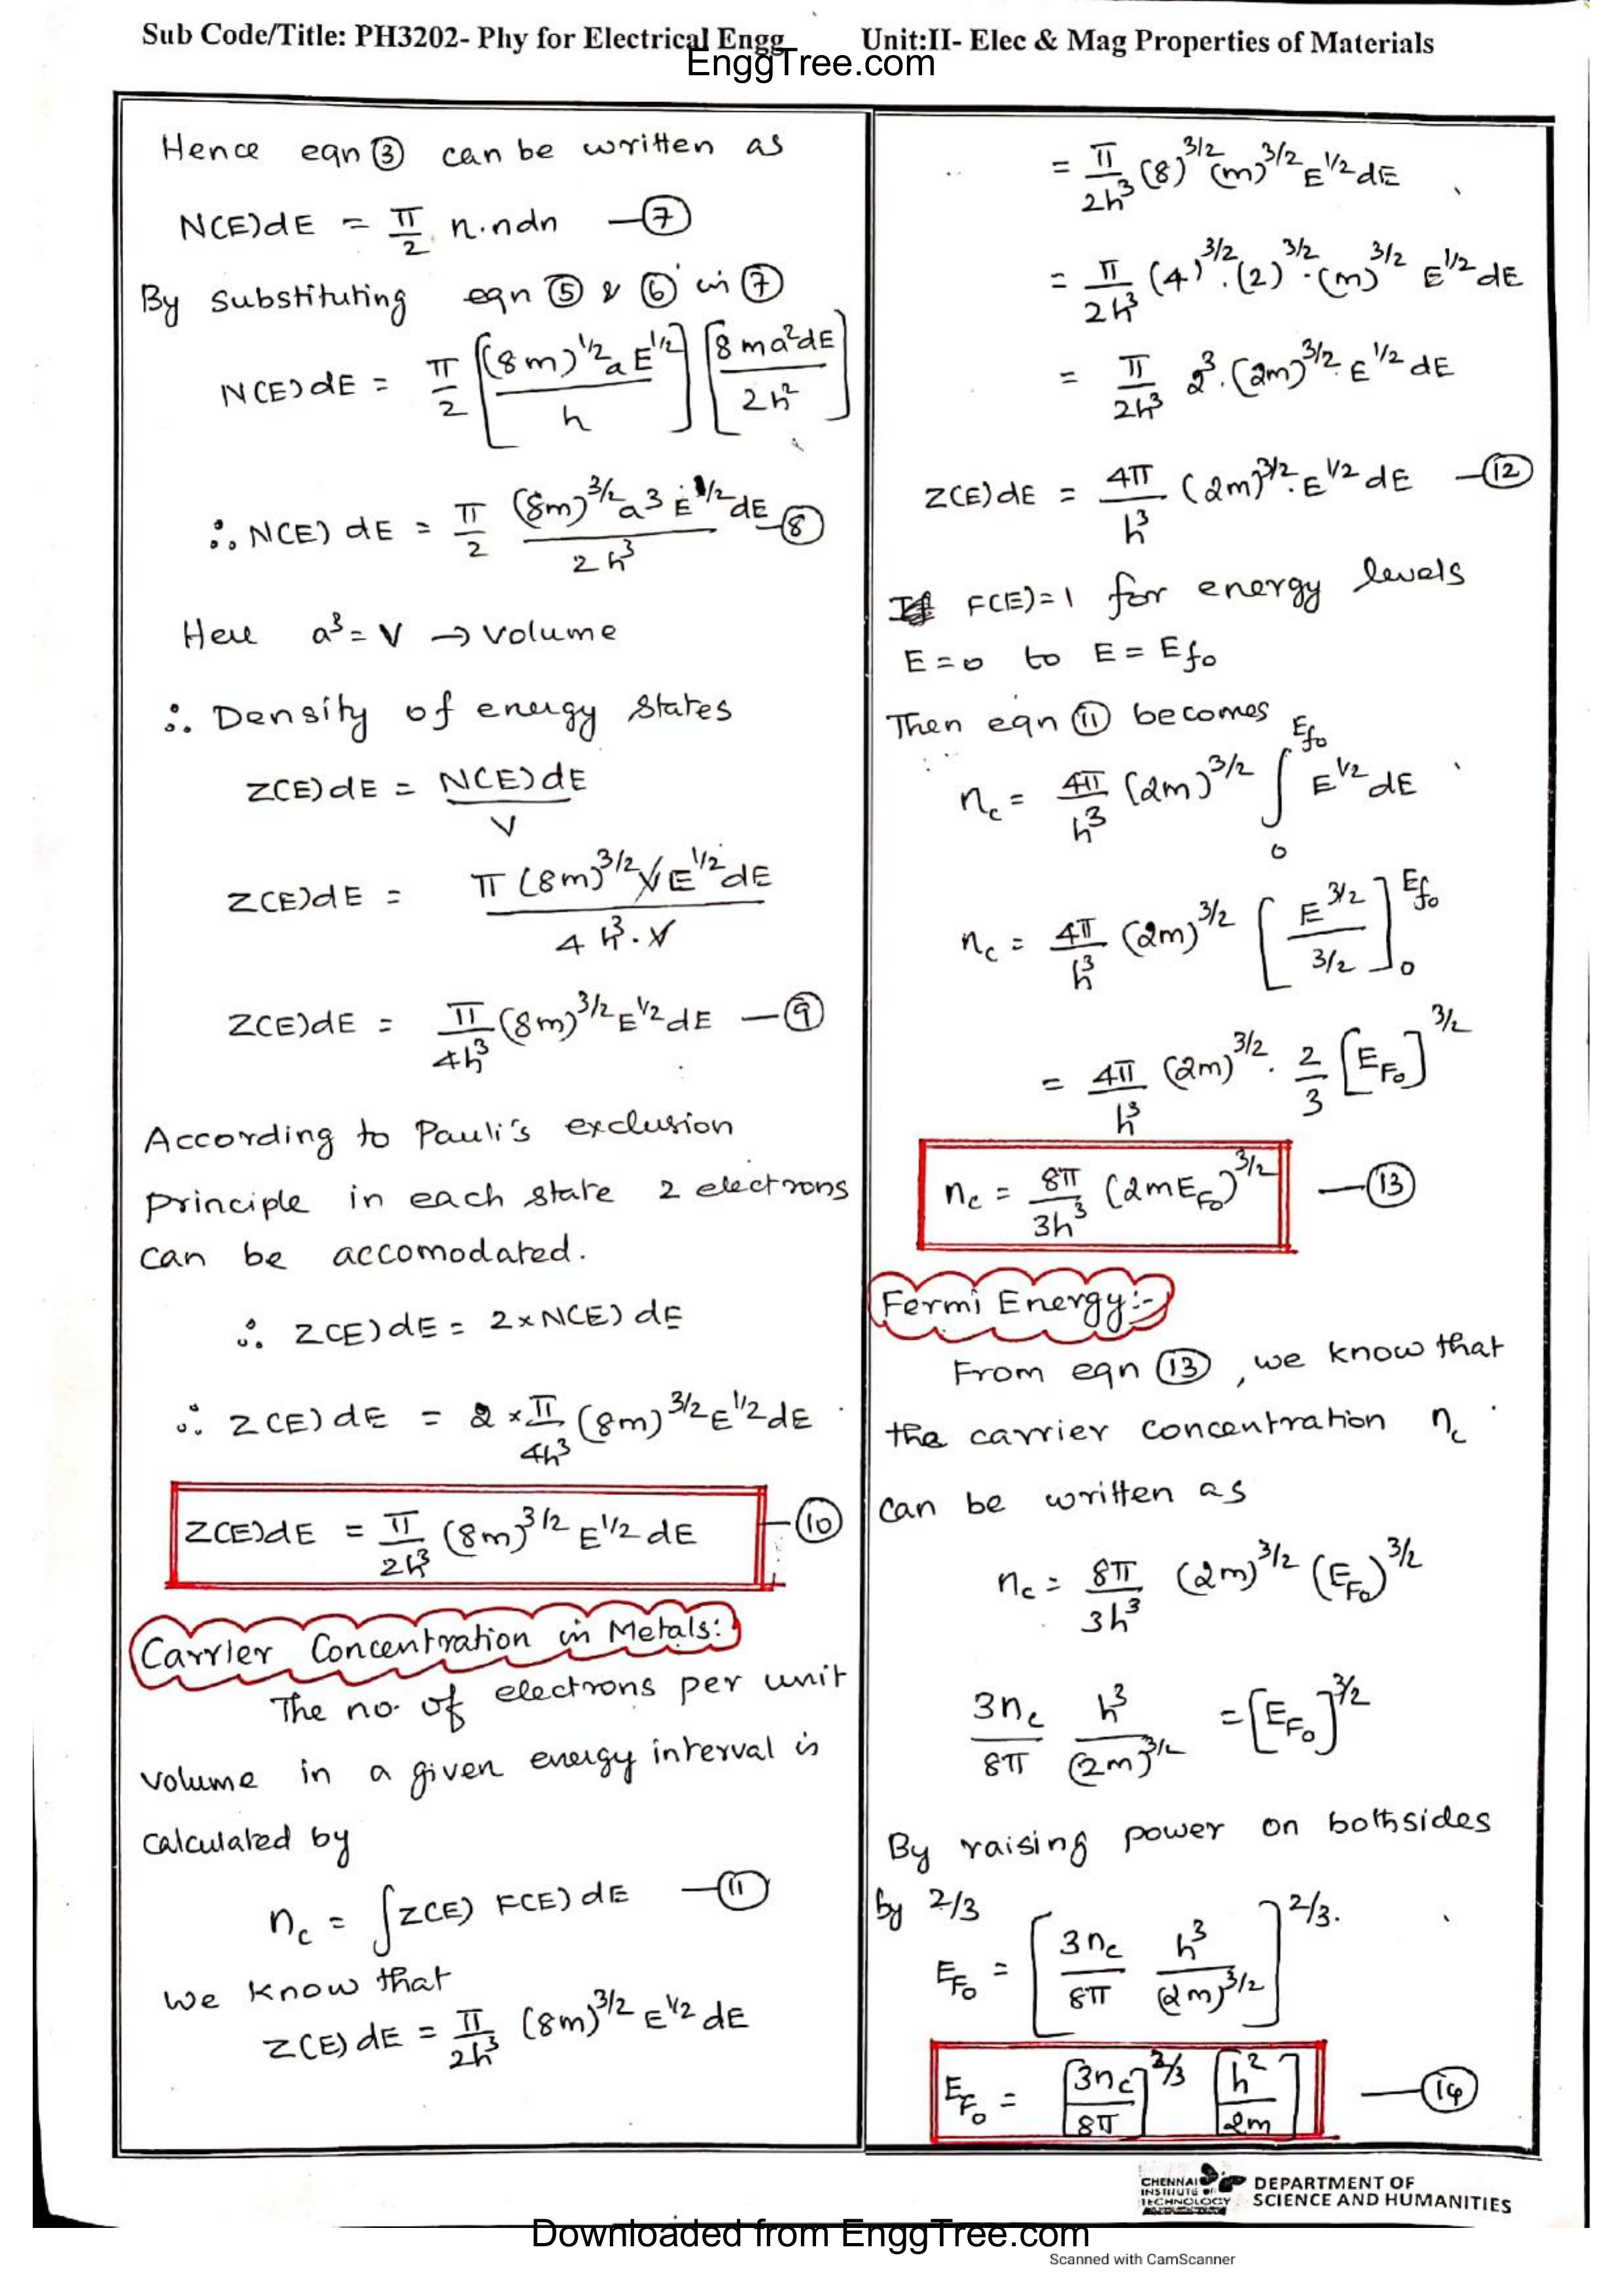 Sub Code/Title: PH3202- Phy for Electrical Engg Unit:II- Elec & Mag Properties of Materials
EnggTree.com
Hence eqn ③ can be written as
N(E)dE = π/2 n.ndn —⑦
By substituting eqn ⑤ & ⑥ in ⑦
N(E)dE = π/2 [(8m)^1/2 a E^1/2 / h] [8ma²dE / 2h²]
∴ N(E) dE = π/2 (8m)^3/2 a³ E^1/2 dE / 2h³ —⑧
Here a³ = V → volume
∴ Density of energy states
Z(E)dE = N(E)dE / V
Z(E)dE = π (8m)^3/2 V E^1/2 dE / 4h³.V
Z(E)dE = π/4h³ (8m)^3/2 E^1/2 dE —⑨
According to Pauli's exclusion
principle in each state 2 electrons
can be accomodated.
∴ Z(E)dE = 2×N(E)dE
∴ Z(E)dE = 2 × π/4h³ (8m)^3/2 E^1/2 dE
Z(E)dE = π/2h³ (8m)^3/2 E^1/2 dE —⑩
Carrier Concentration in Metals:
The no. of electrons per unit
volume in a given energy interval is
calculated by
n_c = ∫Z(E) F(E) dE —⑪
We know that
Z(E) dE = π/2h³ (8m)^3/2 E^1/2 dE
= π/2h³ (8)^3/2 (m)^3/2 E^1/2 dE
= π/2h³ (4)^3/2 . (2)^3/2 . (m)^3/2 E^1/2 dE
= π/2h³ 2³ . (2m)^3/2 . E^1/2 dE
Z(E)dE = 4π/h³ (2m)^3/2 . E^1/2 dE —⑫
If F(E)=1 for energy levels
E=0 to E = E_f₀
Then eqn ⑪ becomes
n_c = 4π/h³ (2m)^3/2 ∫₀^E_f₀ E^1/2 dE
n_c = 4π/h³ (2m)^3/2 [E^3/2 / 3/2]₀^E_f₀
= 4π/h³ (2m)^3/2 . 2/3 [E_F₀]^3/2
n_c = 8π/3h³ (2mE_F₀)^3/2 —⑬
Fermi Energy:-
From eqn ⑬, we know that
the carrier concentration n_c
can be written as
n_c = 8π/3h³ (2m)^3/2 (E_F₀)^3/2
3n_c/8π h³/(2m)^3/2 = [E_F₀]^3/2
By raising power on bothsides
by 2/3
E_F₀ = [3n_c/8π h³/(2m)^3/2]^2/3.
E_F₀ = [3n_c/8π]^2/3 [h²/2m] —⑭
CHENNAI
INSTITUTE OF
TECHNOLOGY
DEPARTMENT OF
SCIENCE AND HUMANITIES
Downloaded from EnggTree.com
Scanned with CamScanner